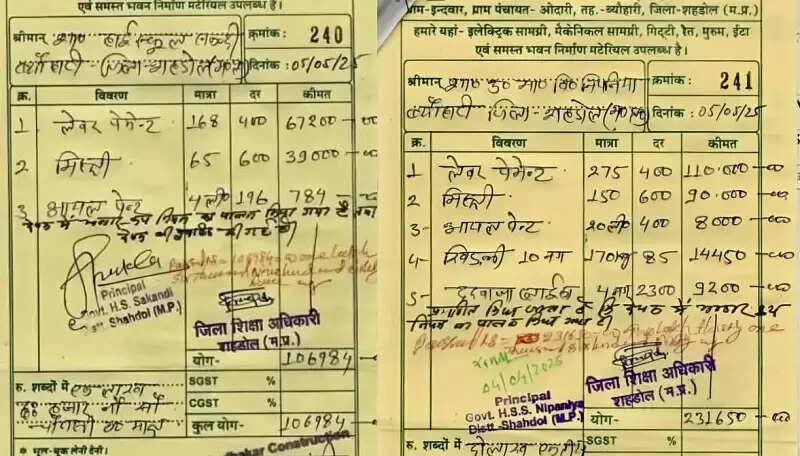 एवं समस्त भवन निर्माण मटेरियल उपलब्ध है।
श्रीमान् शास० हाई स्कूल सकन्दी
क्रमांक: 240
ब्यौहारी जिला शहडोल (म०प्र०)
दिनांक : 05/05/25
क्र. विवरण मात्रा दर कीमत
1 लेबर पेमेन्ट 168 400 67200-00
2 मिस्त्री 65 600 39000-00
3 आयल पेन्ट 4ली० 196 784-00
Principal
Govt. H.S. Sakandi
Distt Shahdol (M.P.)
जिला शिक्षा अधिकारी
शहडोल (म.प्र.)
योग- 106984-00
रु. शब्दों में एक लाख
छः हजार नौ सौ
चौरासी रू० मात्र
SGST %
CGST %
कुल योग- 106984-00
भूल-चूक लेनी देनी।
Construction
ग्राम-इन्दवार, ग्राम पंचायत- ओदारी, तह.-ब्यौहारी, जिला-शहडोल (म.प्र.)
हमारे यहां- इलेक्ट्रिक सामग्री, मैकेनिकल सामग्री, गिट्टी, रेत, मुरुम, ईटा
एवं समस्त भवन निर्माण मटेरियल उपलब्ध है।
श्रीमान् शास० उ० मा० वि० निपनिया
क्रमांक: 241
ब्यौहारी जिला- शहडोल (म०प्र०)
दिनांक : 05/05/25
क्र. विवरण मात्रा दर कीमत
1 लेबर पेमेन्ट 275 400 110.000-00
2 मिस्त्री 150 600 90.000-00
3- आयल पेन्ट 20ली० 400 8000-00
4- खिड़की 10 नग 170kg 85 14450-00
5- दरवाजा 4 नग 2300 9200-00
04/04/2025
Principal
Govt. H.S.S. Nipaniya
Distt-Shahdol (M.P.)
जिला शिक्षा अधिकारी
शहडोल (म.प्र.)
योग- 231650-00
रु. शब्दों में दो लाख
SGST %